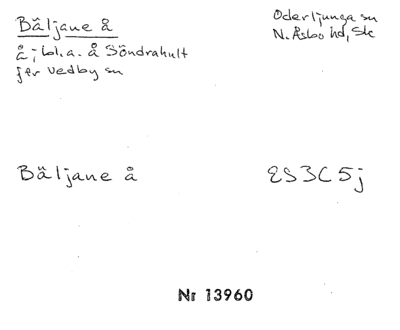 Bäljane å
Oderljunga sn
N. Åsbo hd, Sk
å; bl.a. å Söndrahult
fer Vedby sn
Bäljane å
2S3C5j
Nr 13960